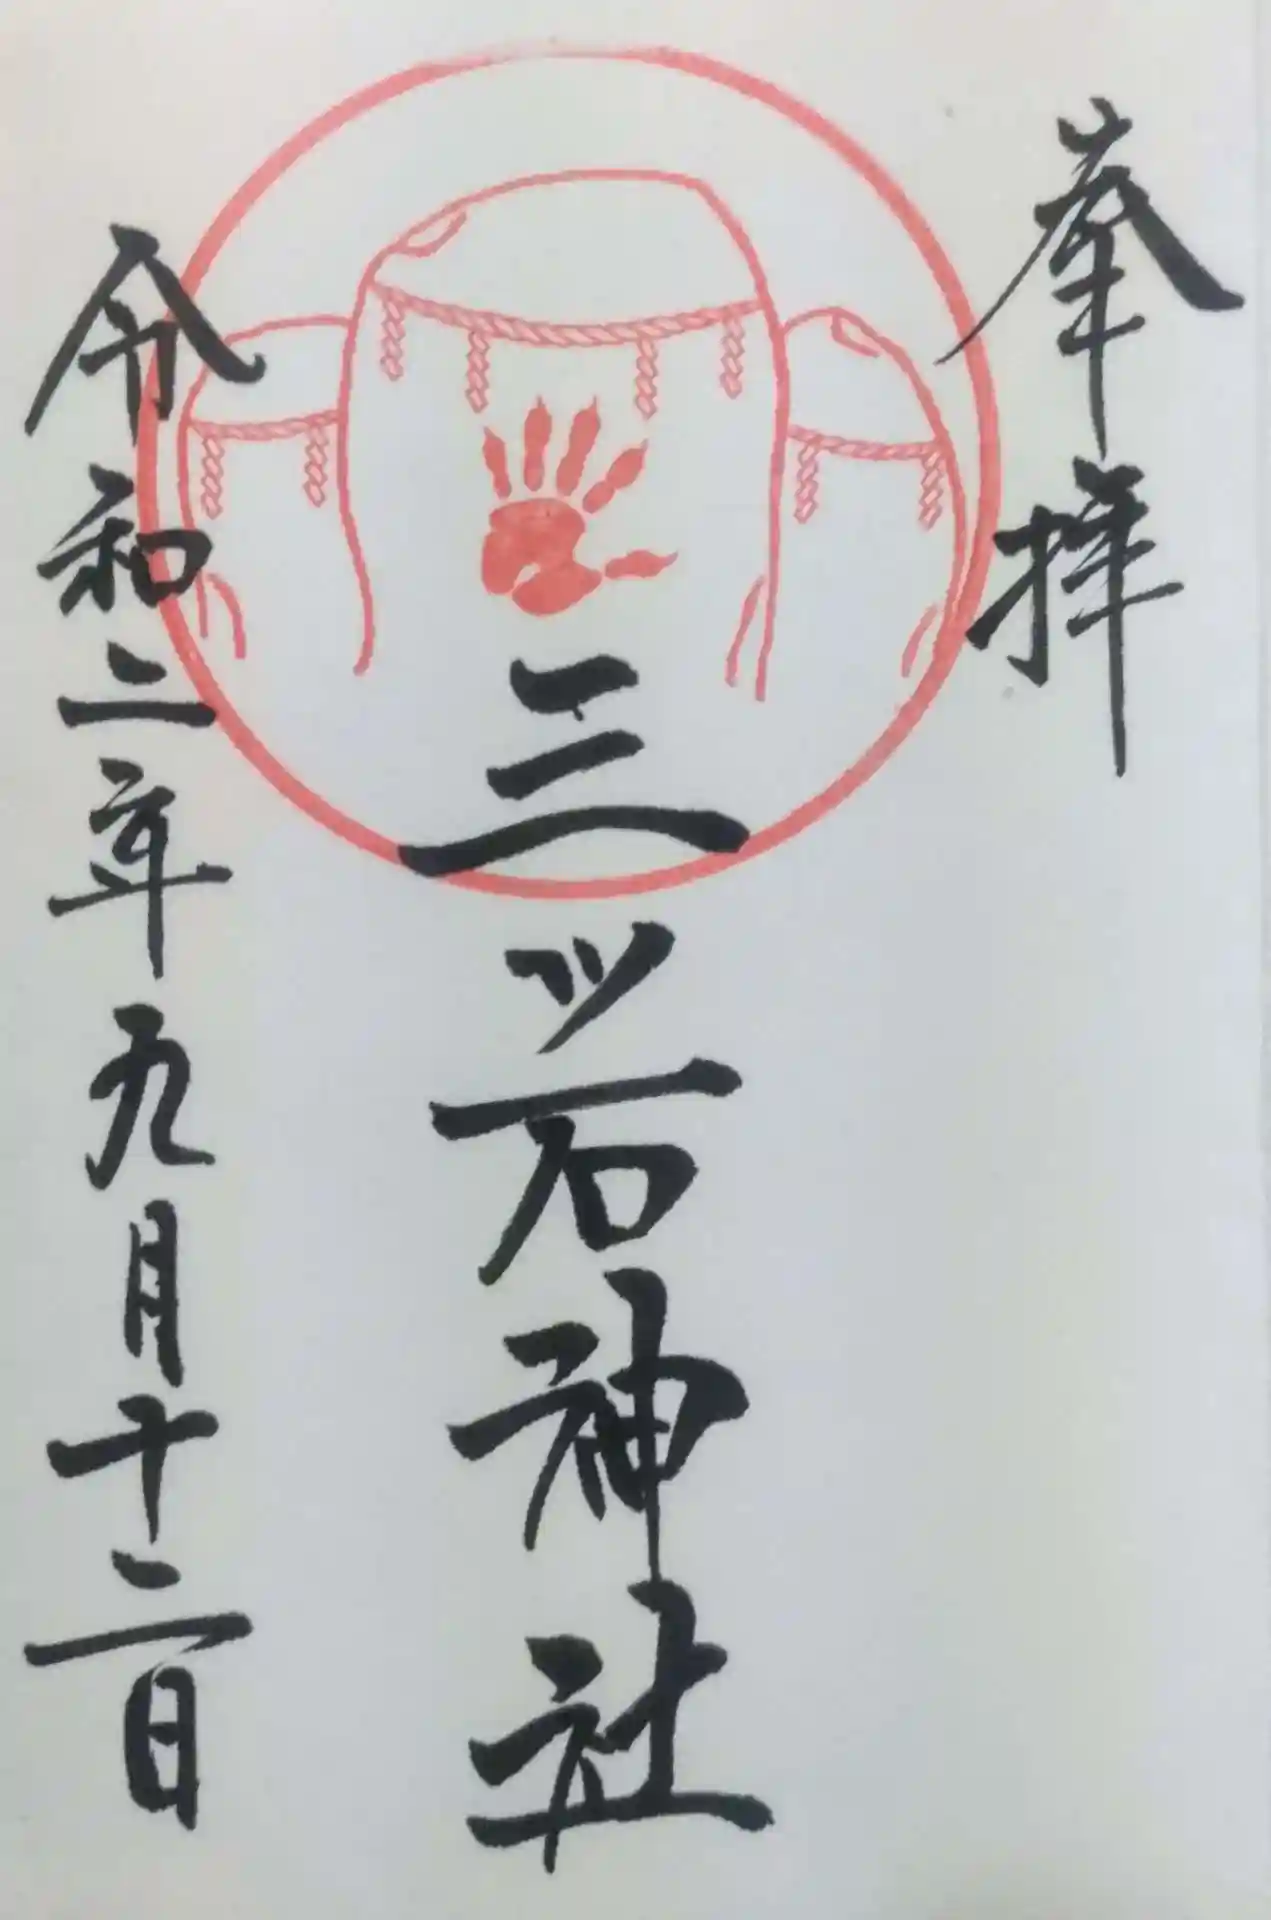 奉拝
三ツ石神社
令和二年九月十二日